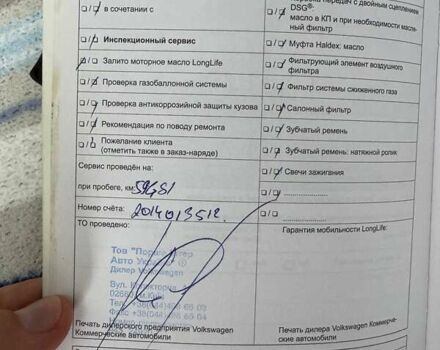 в сочетании с
Инспекционный сервис
Залито моторное масло LongLife
Проверка газобаллонной системы
Проверка антикоррозийной защиты кузова
Рекомендация по поводу ремонта
Пожелание клиента
(отметить также в заказ-наряде)
Сервис проведён на:
при пробеге, км:
Номер счёта: 2014013512.
ТО проведено:
Тов
Авто
Дилер Volkswagen
Вул.
Печать дилерского предприятия Volkswagen
Коммерческие автомобили
передач с двойным сцеплением
DSG®-
масло в КП и при необходимости масля-
ный фильтр
Муфта Haldex: масло
Фильтрующий элемент воздушного
фильтра
Фильтр системы сжиженного газа
Салонный фильтр
Зубчатый ремень
Зубчатый ремень: натяжной ролик
Свечи зажигания
Гарантия мобильности LongLife:
Печать дилера Volkswagen Коммерче-
ские автомобили